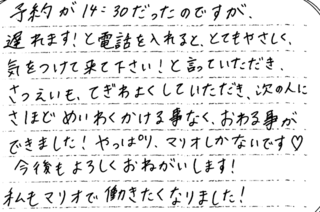 予約が14:30だったのですが、
遅れます!と電話を入れると、とてもやさしく、
気をつけて来て下さい!と言っていただき、
さつえいも、てぎわよくしていただき、次の人に
さほどめいわくかける事なく、おわる事が
できました!やっぱり、マリオしかないです♡
今後もよろしくおねがいします!
私もマリオで働きたくなりました!